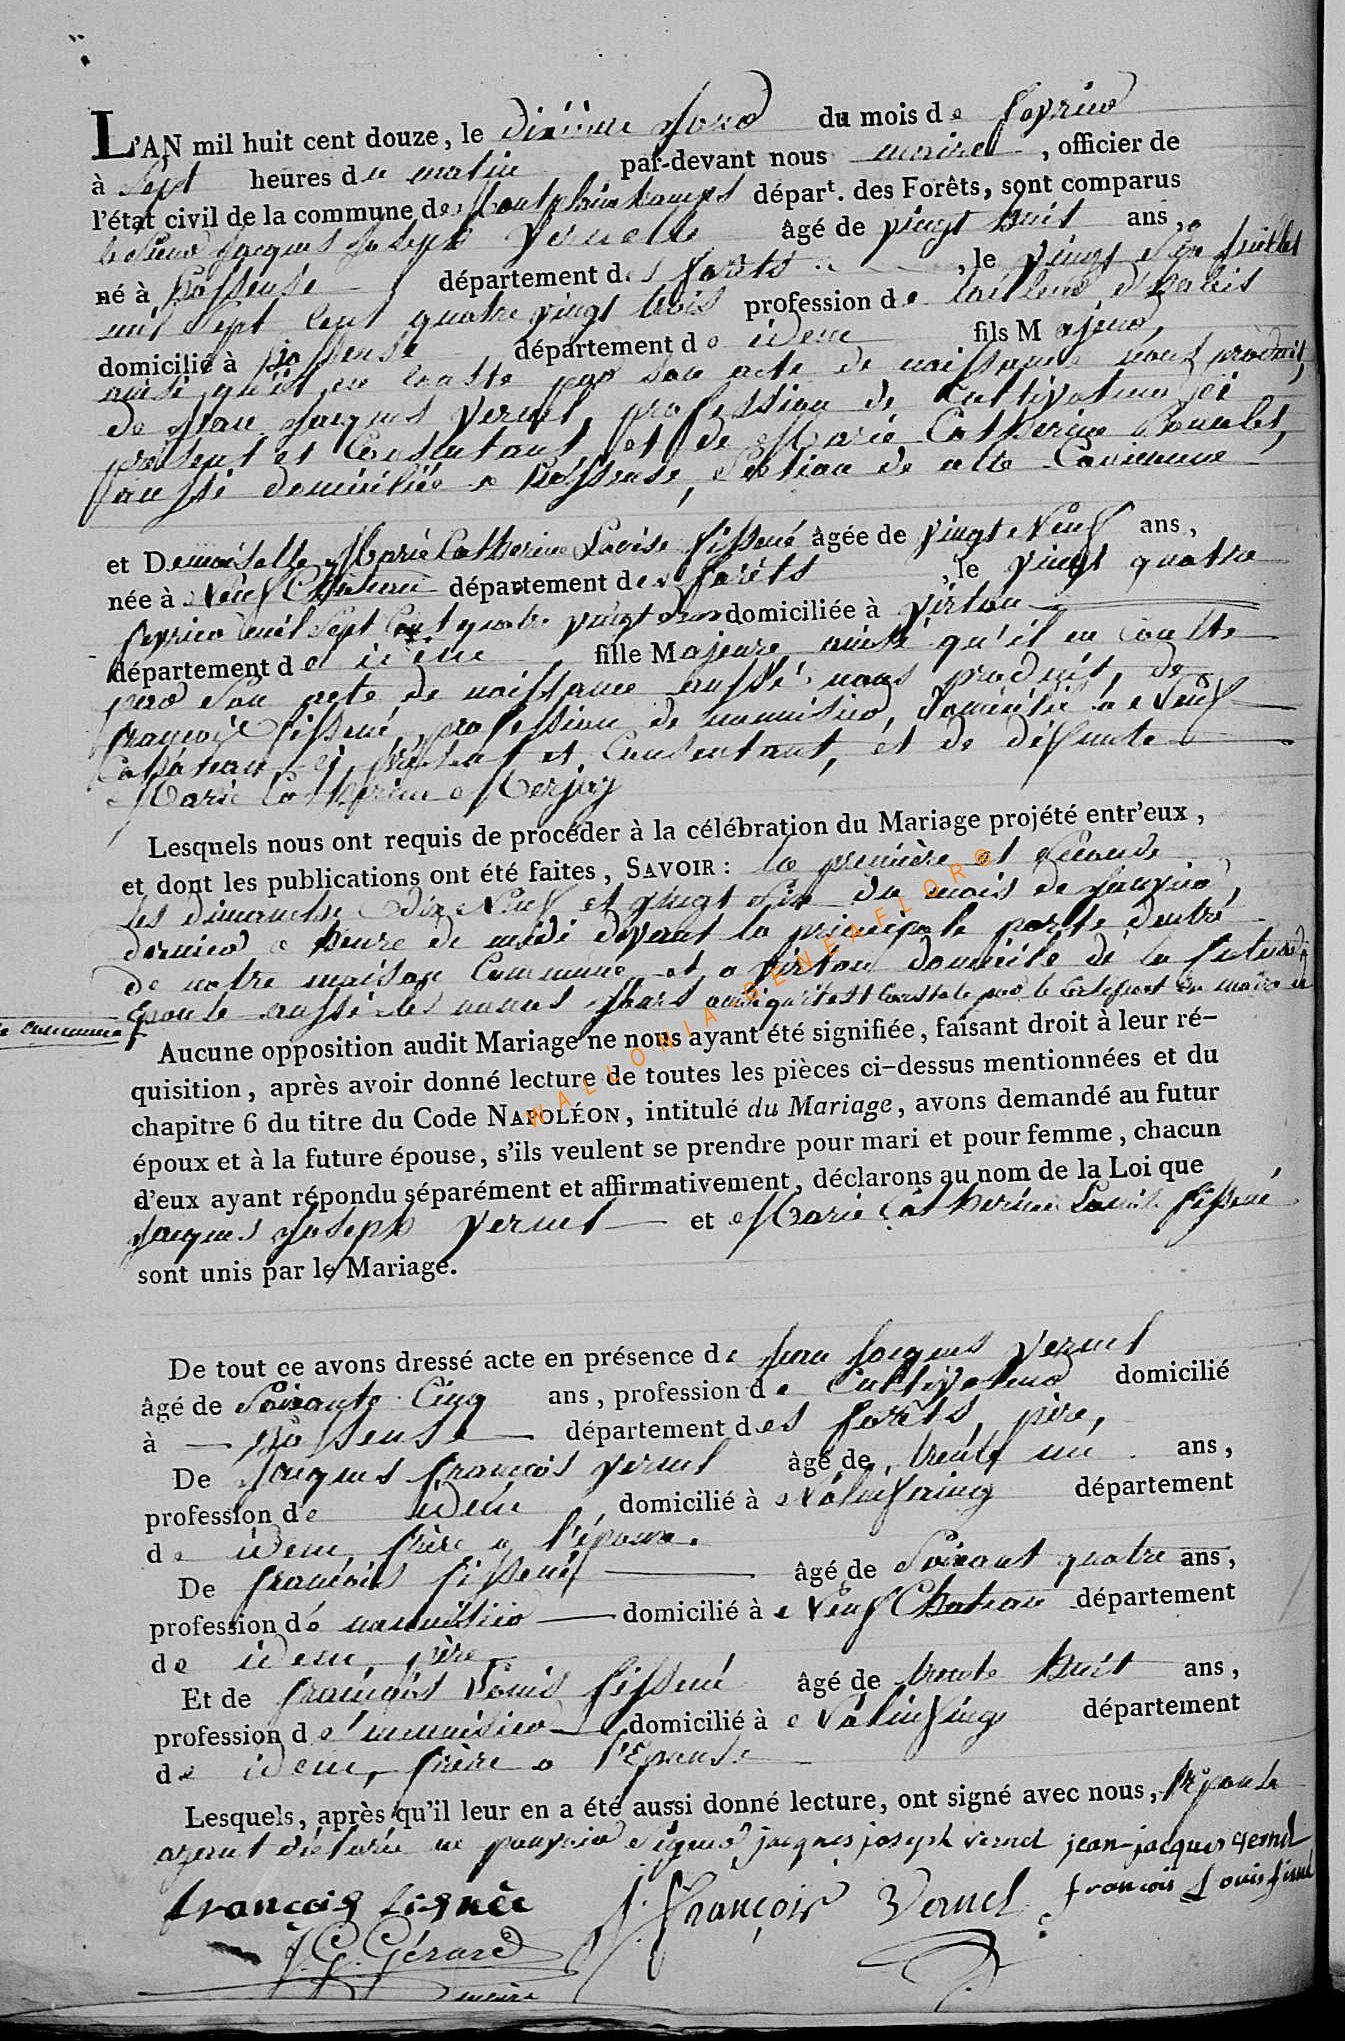 L'AN mil huit cent douze, le dixième jour du mois de fevrier
à Sept heures du matin par-devant nous maire, officier de
l'état civil de la commune de Montplainchamps départ. des Forêts, sont comparus
le Sieur Jacques Joseph Vernel âgé de vingt huit ans,
né à Hosseuse département des forêts, le vingt Six juillet
mil Sept Cent quatre vingt trois profession de tailleur d'habit
domicilié à Hosseuse département de idem fils Majeur,
ainsi qu'il en conste par son acte de naissance nous produit,
de Jean Jacques Vernel, profession de Cultivateur ci
présent et Consentant, et de Marie Catherine
aussi domiciliée a Hosseuse, Section de cette Commune
et Demoiselle Marie Catherine Louise fissené âgée de vingt Neuf ans,
née à Neuf Chateau département des forêts, le vingt quatre
fevrier mil Sept Cent quatre vingt domiciliée à Virton
département de idem fille Majeure ainsi qu'il en Conste
par son acte de naissance aussi nous produit, de
françois fissené, profession de menuisier, domicilié a Neuf
Chateau, ci présent et Consentant, et de défunte
Marie Catherine Merjay
Lesquels nous ont requis de procéder à la célébration du Mariage projété entr'eux,
et dont les publications ont été faites, SAVOIR: la première et Seconde
les dimanche dix Neuf et vingt Six du mois de Janvier
dernier a heure de midi devant la principale porte d'entré
de notre maison Commune et a Virton domicile de la future
Epouse aussi les memes jours ainsi qu'il est Constaté par le Certificat du maire de
commune
Aucune opposition audit Mariage ne nous ayant été signifiée, faisant droit à leur ré-
quisition, après avoir donné lecture de toutes les pièces ci-dessus mentionnées et du
chapitre 6 du titre du Code NAPOLÉON, intitulé du Mariage, avons demandé au futur
époux et à la future épouse, s'ils veulent se prendre pour mari et pour femme, chacun
d'eux ayant répondu séparément et affirmativement, déclarons au nom de la Loi que
Jacques Joseph Vernel et Marie Catherine Louise fissené
sont unis par le Mariage.
De tout ce avons dressé acte en présence de Jean Jacques Vernel
âgé de Soixante Cinq ans, profession de Cultivateur domicilié
à Hosseuse département des forêts, père,
De Jacques François Vernel âgé de trente un ans,
profession de idem domicilié à Nolinfaing département
de idem, frère a l'époux.
De françois fissené âgé de Soixant quatre ans,
profession de menuisier domicilié à Neuf Chateau département
de idem père
Et de françois Louis fissené âgé de trente huit ans,
profession de menuisier domicilié à Nolinfaing département
de idem, frère a l'Epouse
Lesquels, après qu'il leur en a été aussi donné lecture, ont signé avec nous, l'épouse
ayant déclarée ne pouvoir signer jacques joseph vernel jean-jacques vernel
françois fisnée J: François Vernel françois Louis fisné
J. G. Gérard
maire
WALLONIA-GENEAFLOR©